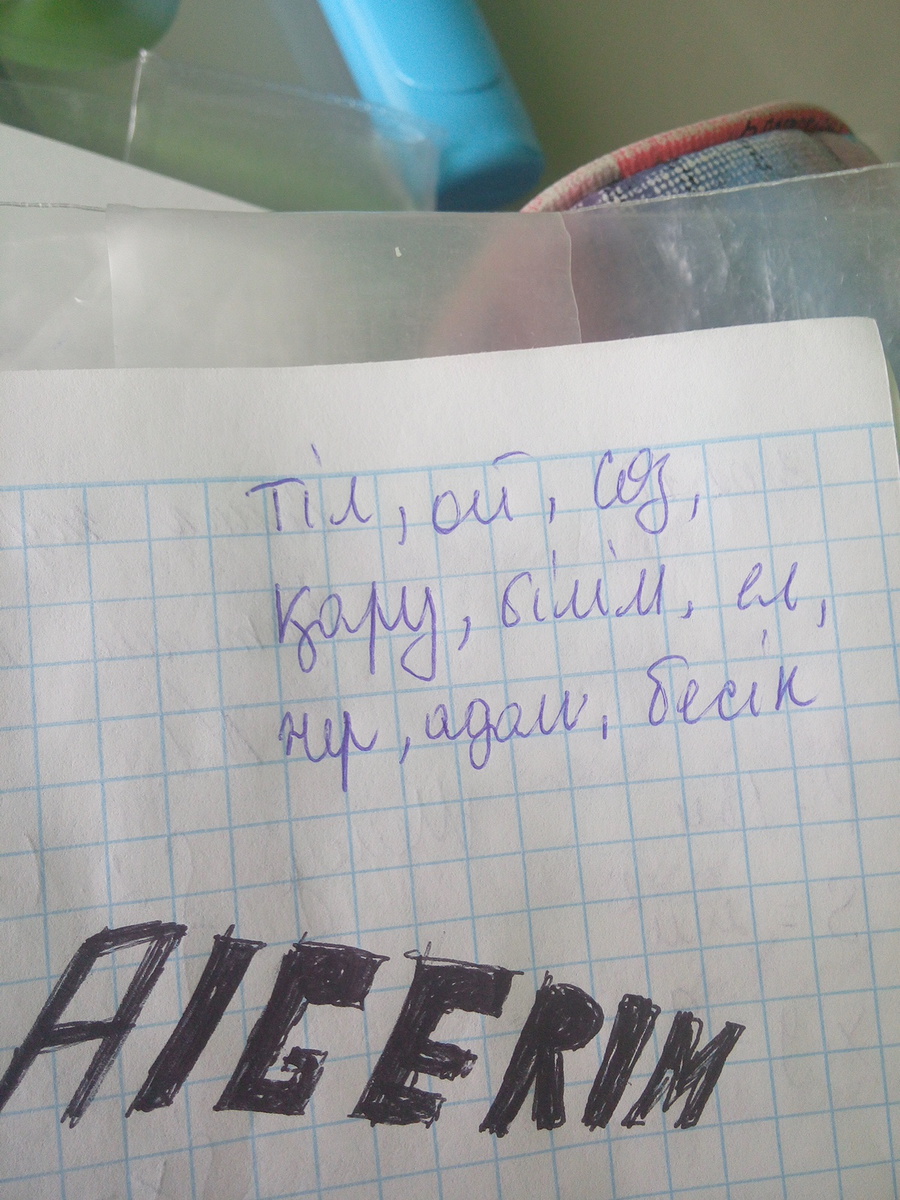 тіл, ой, сөз,
қару, білім, ел,
жер, адам, бесік
AIGERIM